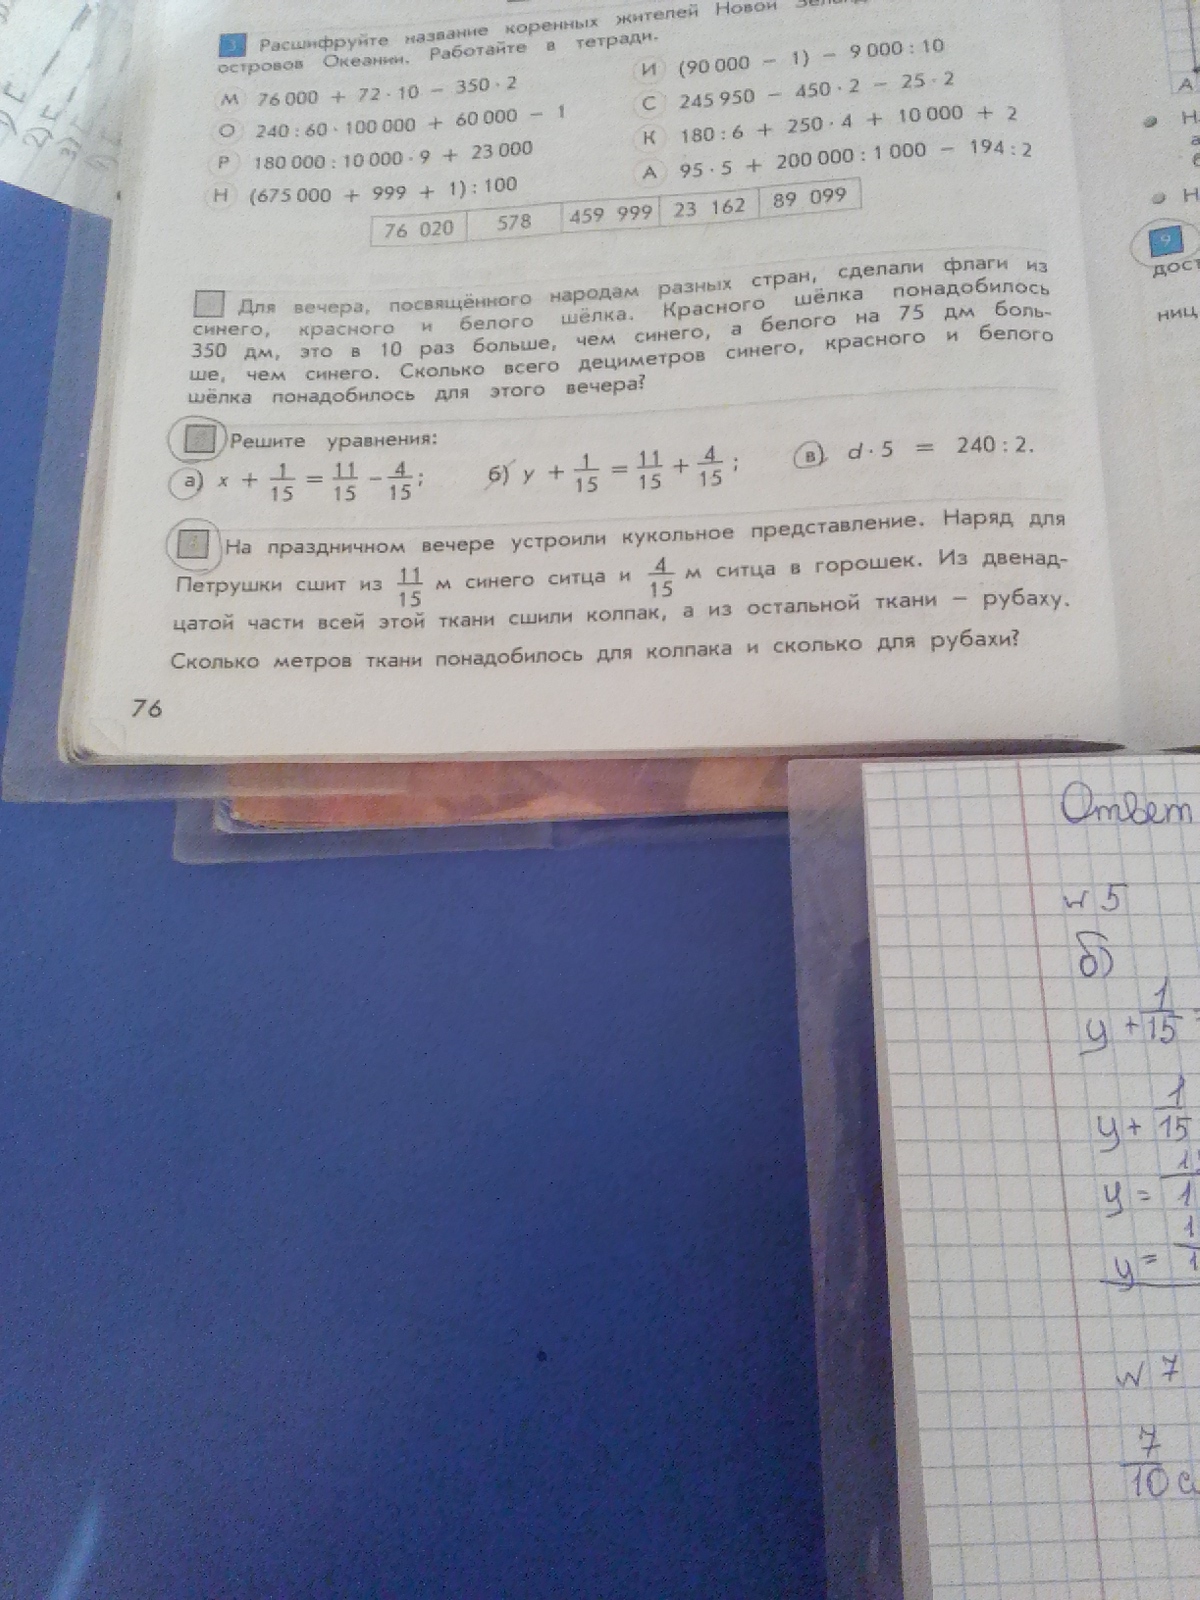 3 Расшифруйте название коренных жителей Новой
островов Океании. Работайте в тетради.
М 76 000 + 72 · 10 − 350 · 2
О 240 : 60 · 100 000 + 60 000 − 1
Р 180 000 : 10 000 · 9 + 23 000
Н (675 000 + 999 + 1) : 100
И (90 000 − 1) − 9 000 : 10
С 245 950 − 450 · 2 − 25 · 2
К 180 : 6 + 250 · 4 + 10 000 + 2
А 95 · 5 + 200 000 : 1 000 − 194 : 2
76 020 578 459 999 23 162 89 099
Для вечера, посвящённого народам разных стран, сделали флаги из
синего, красного и белого шёлка. Красного шёлка понадобилось
350 дм, это в 10 раз больше, чем синего, а белого на 75 дм боль-
ше, чем синего. Сколько всего дециметров синего, красного и белого
шёлка понадобилось для этого вечера?
Решите уравнения:
а) x + 1/15 = 11/15 − 4/15; б) y + 1/15 = 11/15 + 4/15; в) d · 5 = 240 : 2.
На праздничном вечере устроили кукольное представление. Наряд для
Петрушки сшит из 11/15 м синего ситца и 4/15 м ситца в горошек. Из двенад-
цатой части всей этой ткани сшили колпак, а из остальной ткани − рубаху.
Сколько метров ткани понадобилось для колпака и сколько для рубахи?
76
А
9
Ответ
№ 5
б)
y + 1/15 =
y + 1/15
y =
y =
№ 7
7/10